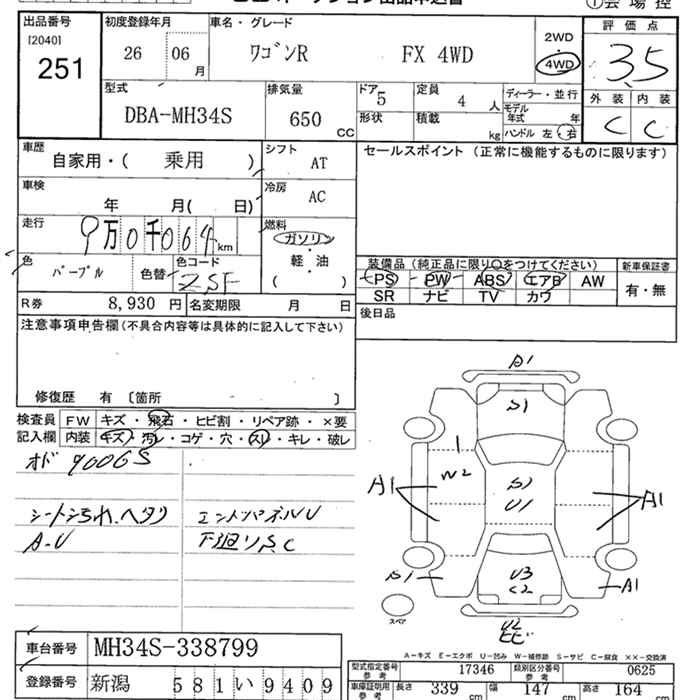 出品番号 初度登録年月 車名・グレード 評価点
[2040] 2WD
251 26 06月 ワゴンR FX 4WD 4WD 3.5
型式 排気量 ドア 定員 ディーラー・並行 外装 内装
DBA-MH34S 650CC 5 4人 モデル年式 年 C C
形状 積載 kg ハンドル 左・右
車歴 自家用・( 乗用 ) シフト AT セールスポイント (正常に機能するものに限ります)
車検 年 月( 日) 冷房 AC
走行 9万0千064km 燃料 ガソリン
軽・油
( )
色 パープル 色替 色コード ZSF
装備品 (純正品に限り○をつけてください) 新車保証書
PS PW ABS エアB AW 有・無
SR ナビ TV カワ
R券 8,930円 名変期限 月 日 後日品
注意事項申告欄(不具合内容等は具体的に記入して下さい)
修復歴 有 〔箇所 〕
検査員 FW キズ・飛石・ヒビ割・リペア跡・×要
記入欄 内装 キズ・汚レ・コゲ・穴・スレ・キレ・破レ
オド 90065
シート汚れ、ヘタリ エンドパネルU
A-U 下廻りS.C
A1
S1
W2
A1 A1
U1
S1 U3 A1
C2
U2
スペア
A-キズ E-エクボ U-凹み W-補修跡 S-サビ C-腐食 ××-交換済
車台番号 MH34S-338799
登録番号 新潟 581 い 9409
型式指定番号 参考 17346 類別区分番号 参考 0625
車庫証明用 参考 長さ 339 cm 幅 147 cm 高さ 164 cm